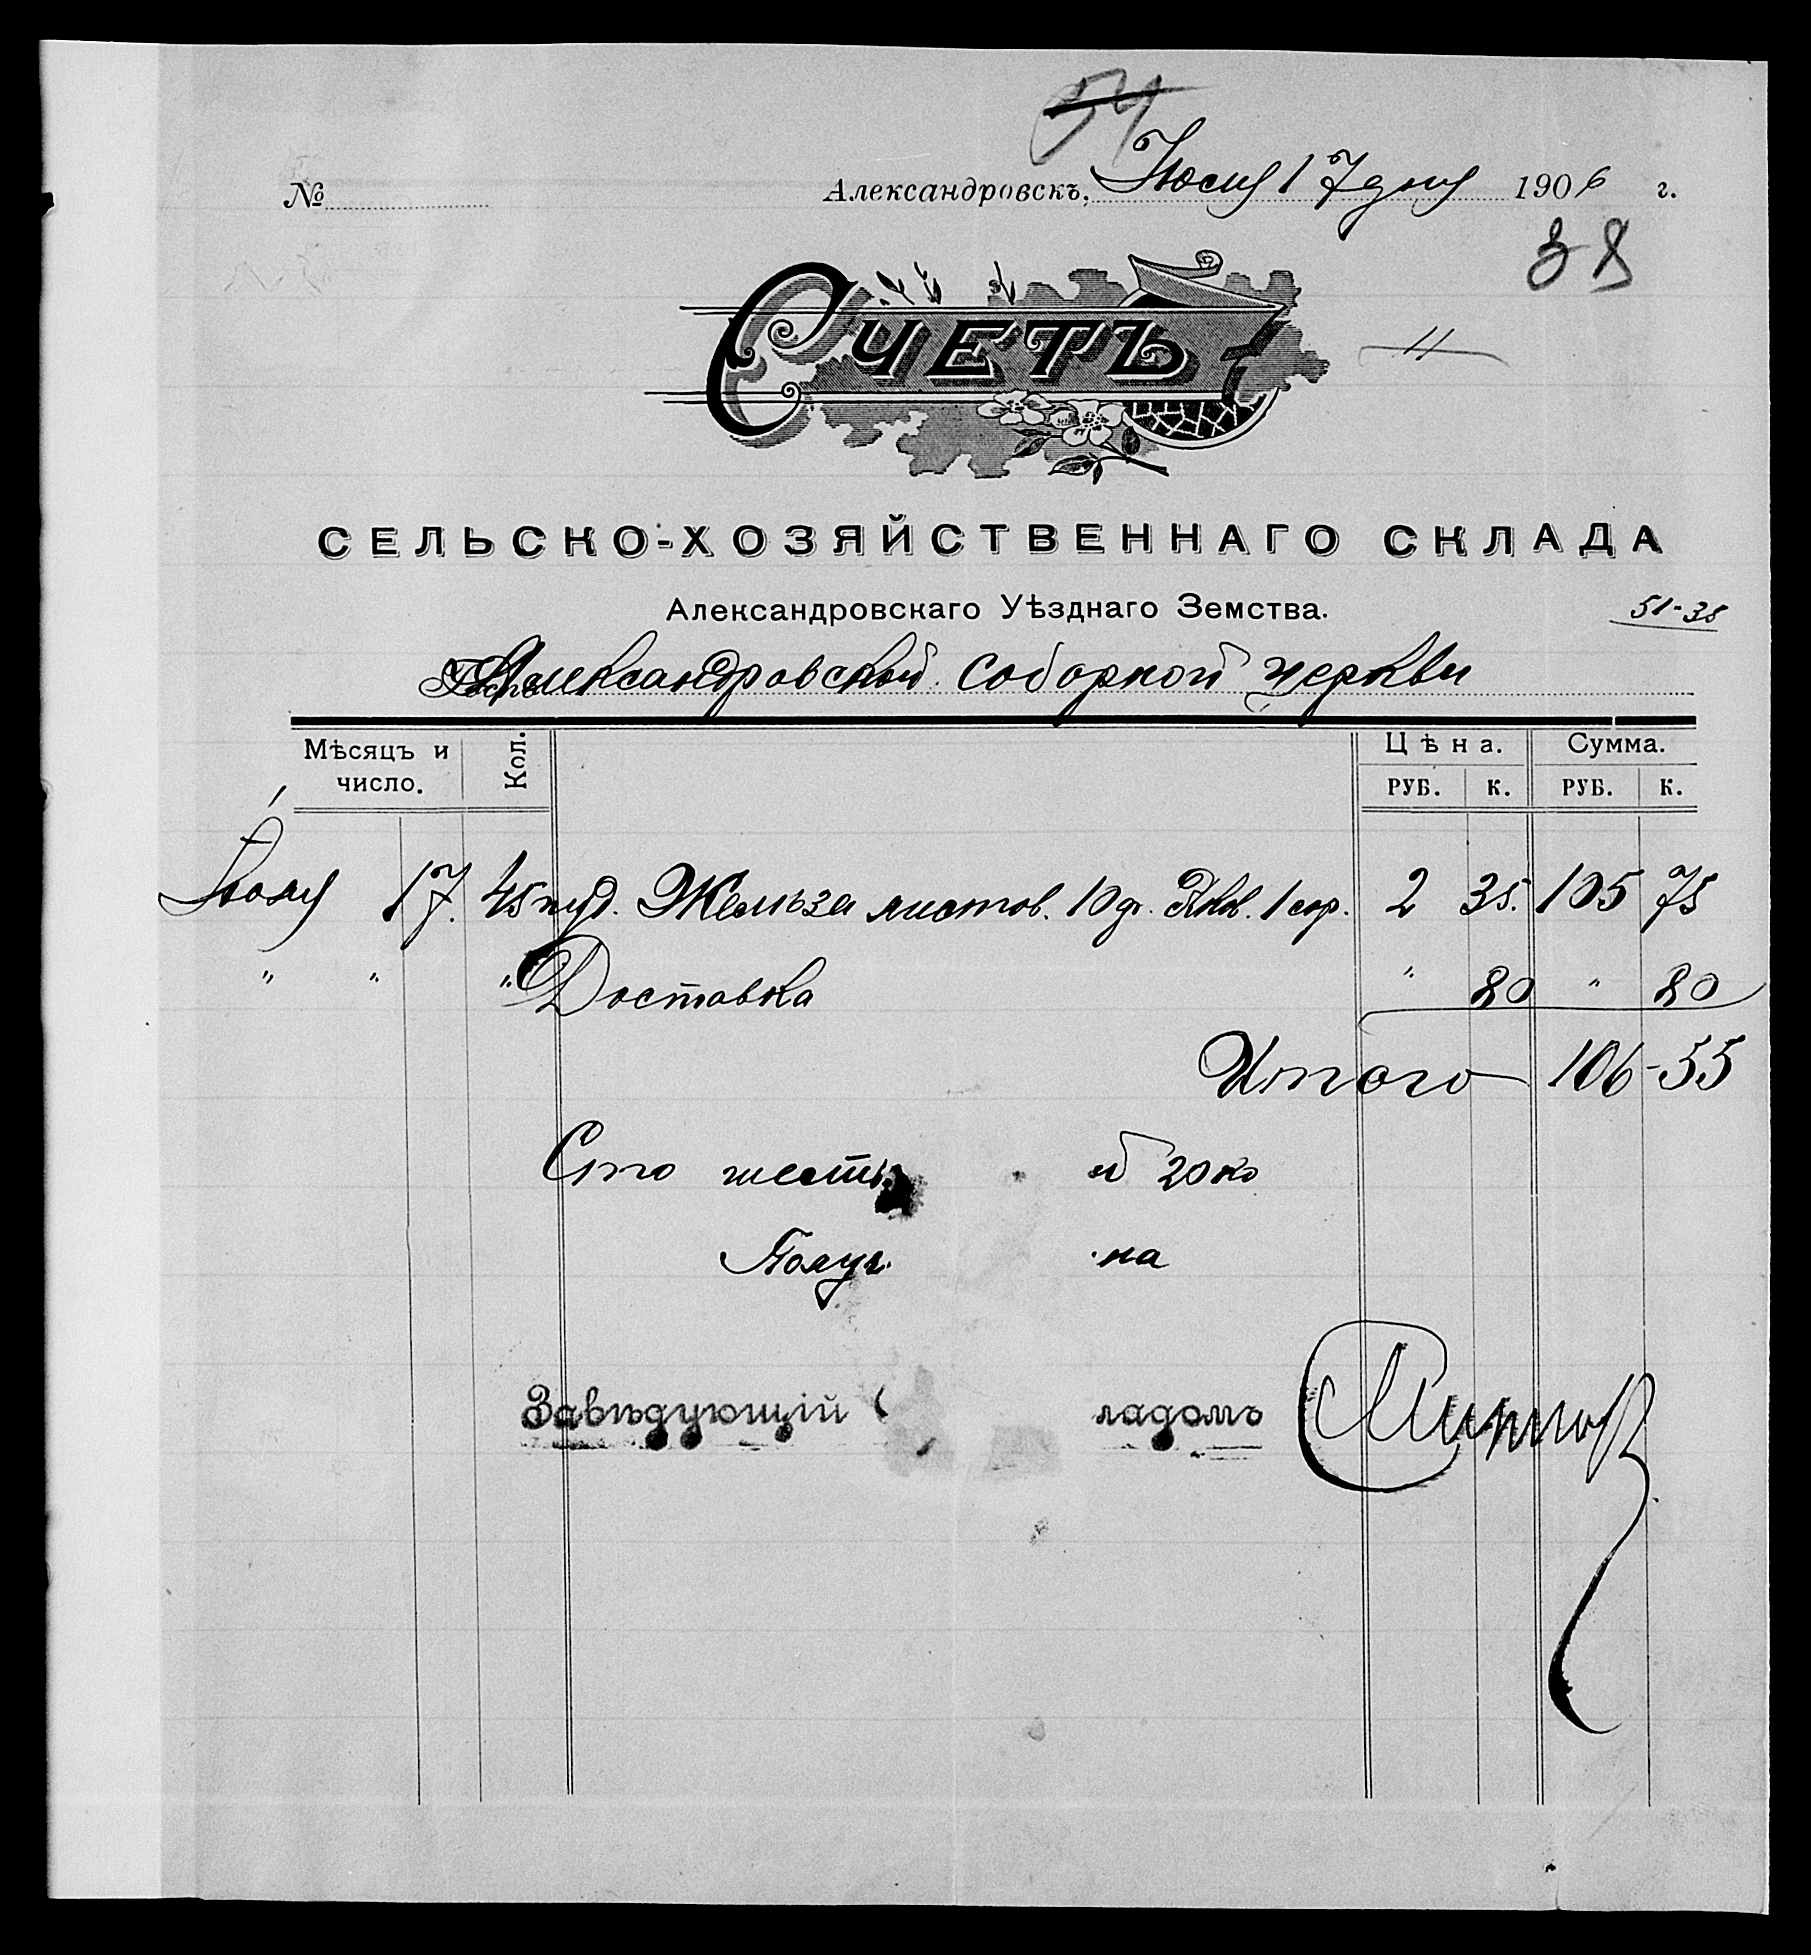 54
№ Александровскъ, Июля 17 дня 1906 г.
38
Счетъ
СЕЛЬСКО-ХОЗЯЙСТВЕННАГО СКЛАДА
Александровскаго Уѣзднаго Земства.
51-35
Александровской соборной церкви
Мѣсяцъ и число. Кол. Цѣна. Сумма.
РУБ. К. РУБ. К.
Июля 17. 45 пуд. Желѣза листов. 10 ф. 1 сор. 2 35. 105 75
" " " Доставка " 80 " 80
Итого 106-55
Сто шесть й 20 ко
Получ. на
Завѣдующій ладомъ